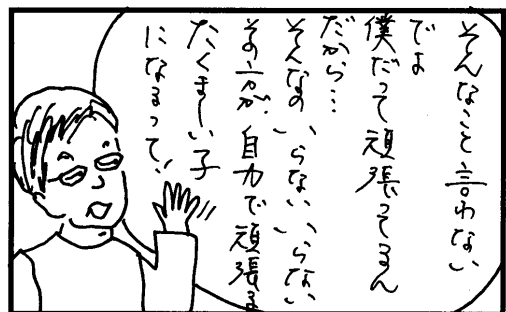 そんなこと言わない
でよ
僕だって頑張ってるん
だから…
そんなのいらないいらない
その方が、自力で頑張る
たくましい子
になるって!